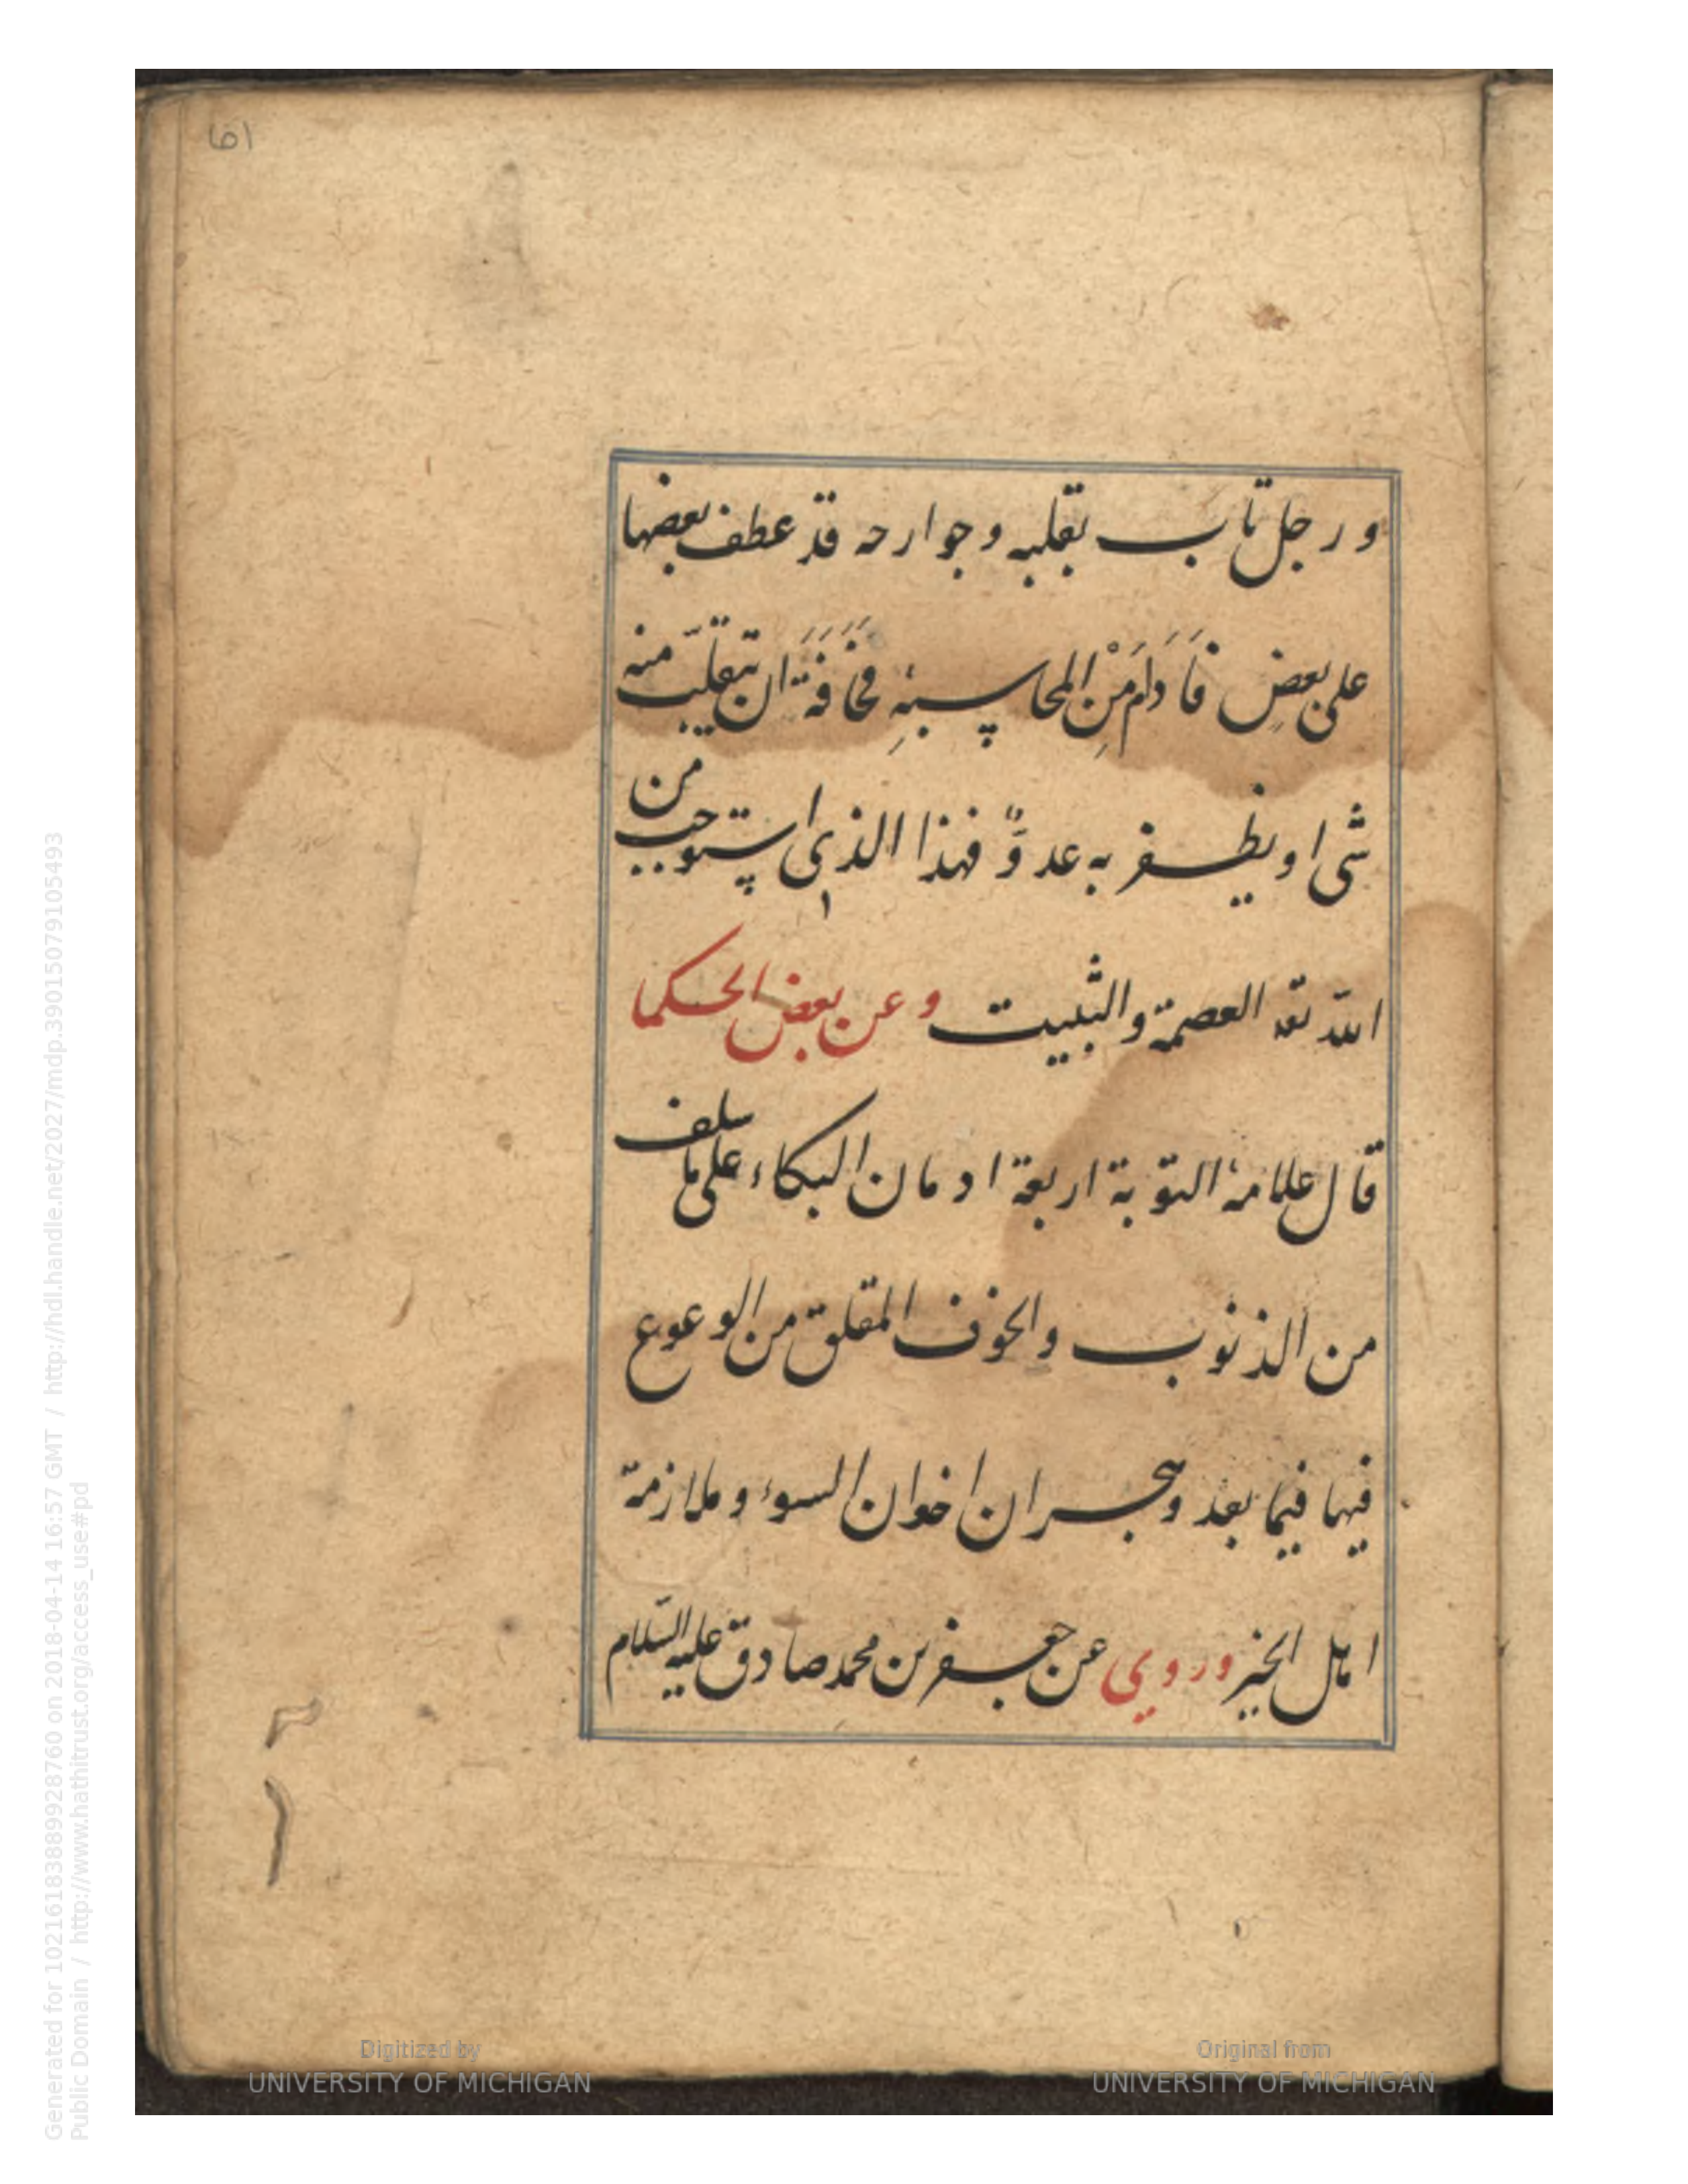 ٥١
و رجل تاب بقلبه و جوارحه قد عطف بعضها
على بعض فَاَدَامَ مْن المحاسبهٔ مَخَافَةَ ان يتقلّب منه
شئ او يظفر به عدوٌّ فهذا الذى استوجب من
اللّه تعه العصمة والثبيت و عن بعض الحكما
قال علامهٔ التوبة اربعة ادمان البكاء على ما سلف
من الذنوب والخوف المقلق من الوعوع
فيها فيما بعد وهجران اخوان السوء و ملازمة
اهل الخير وروي عن جعفر بن محمد صادق عليه السّلام
Digitized by
UNIVERSITY OF MICHIGAN
Original from
UNIVERSITY OF MICHIGAN
Generated for 102161838899928760 on 2018-04-14 16:57 GMT / http://hdl.handle.net/2027/mdp.39015079105493
Public Domain / http://www.hathitrust.org/access_use#pd